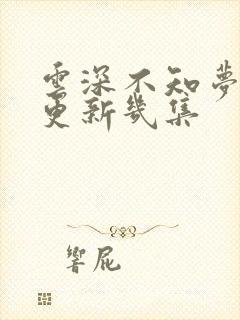 雲深不知夢
更新幾集
響屁